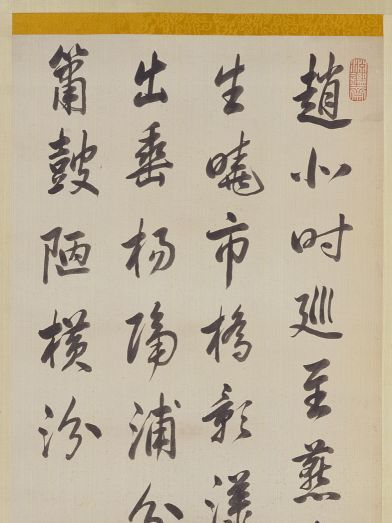 趙北时巡至燕
生曉市橋影漾
出垂杨隔浦分
簫鼓陋横汾